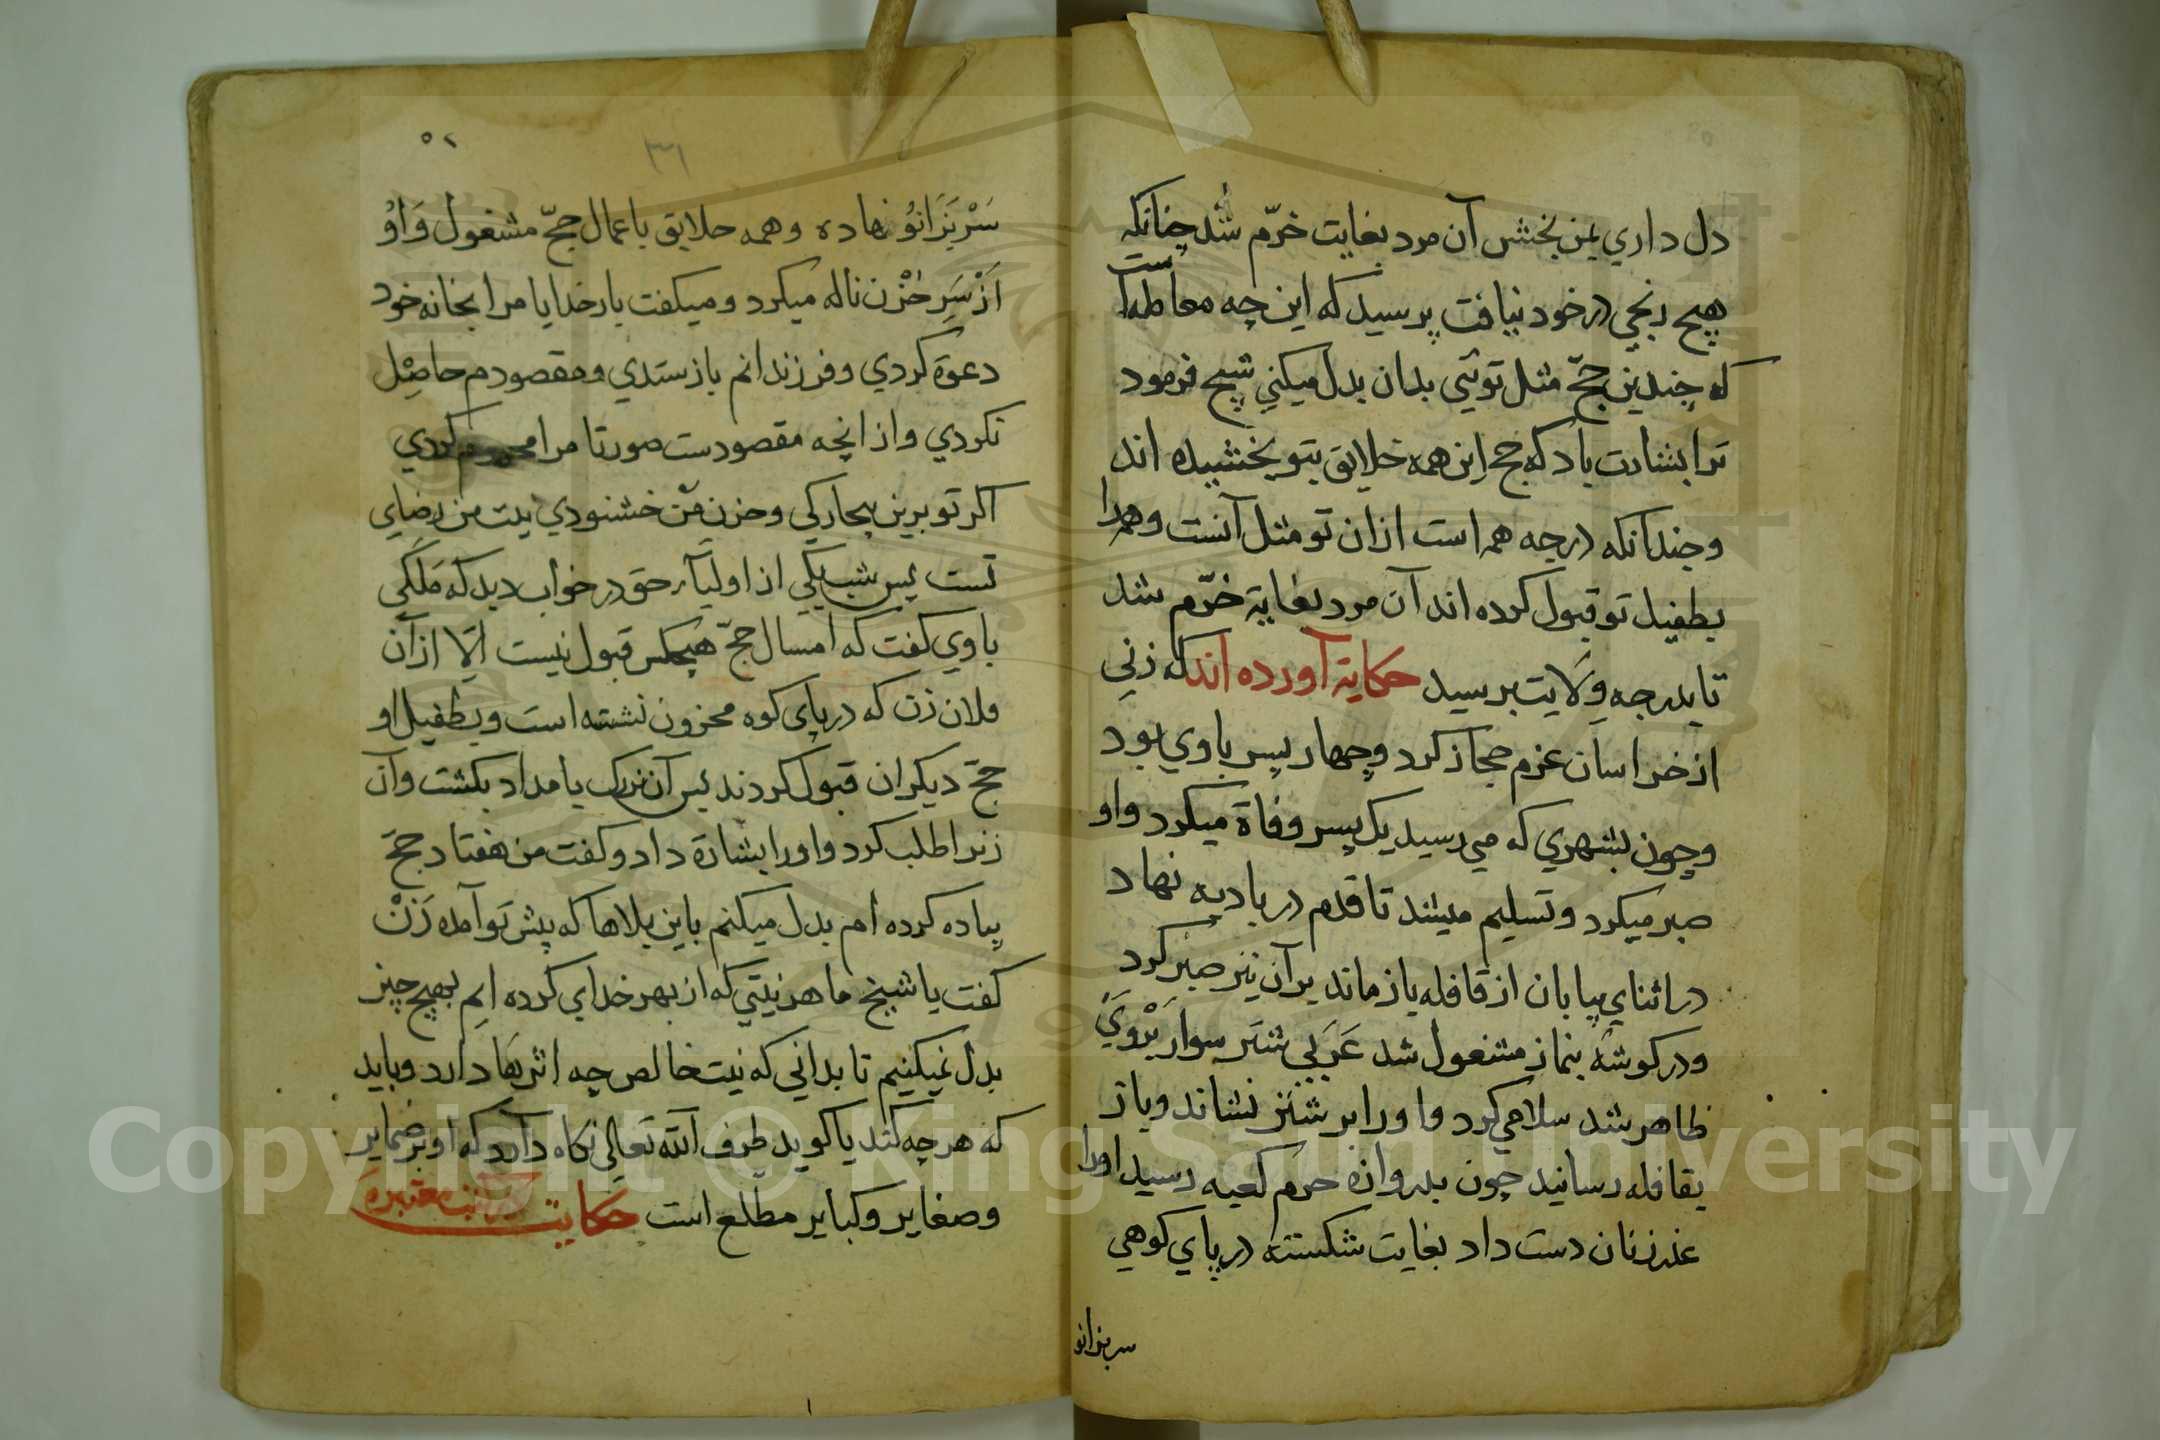 دل داري بمن بخش آن مرد بغايت خرّم شد چنانكه
هيچ رنجي در خود نيافت پرسيد كه اين چه معامله است
كه چندين حجّ مثل توئي بدان بدل ميكني شيخ فرمود
ترا بشارت باد كه حج اين همه خلايق بتو بخشيده اند
وچندانكه درجه همه است ازان تو مثل آنست وهمه را
بطفيل تو قبول كرده اند آن مرد بغاية خرّم شد
تا بدرجه ولايت برسيد حكاية آورده اند كه زني
از خراسان عزم حجاز كرد وچهار پسر باوي بود
وچون بشهري كه مي رسيد يك پسر وفاة ميكرد واو
صبر ميكرد وتسليم ميشد تا قدم در باديه نهاد
در اثناي بيابان از قافله باز ماند بر آن نيز صبر كرد
ودر كوشه بنماز مشغول شد عَرَبي شتر سوار بروي
ظاهر شد سلامي كرد واورا بر شتر نشاند وباز
بقافله رسانيد چون بدروازه حرم كعبه رسيد اورا
عذر زنان دست داد بغايت شكسته در پاي كوهي
سر بزانو
٥٢
٣٦
سَرْ بَزَانُو نهاده وهمه خلايق باعمال حجّ مشغول وَاوُ
اَزْ سَرِ حُزْن ناله ميكرد وميكفت بار خدايا مرا بخانه خود
دعوة كردي وفرزندانم باز ستدي ومقصودم حاصِل
نكردي واز انچه مقصودست صورتا مرا محروم كردي
اكر تو برين بيچاركي وحزن من خشنودي نيت من رضاي
تست پس شب يكي از اوليآء حق در خواب ديد كه مَلَكي
باوي كفت كه امسال حجّ هيچكس قبول نيست اِلّا از آن
فلان زن كه در پاي كوه محزون نشسته است وبطفيل او
حجّ ديكران قبول كردند پس آن بزرك بامداد بكشت وآن
زنرا طلب كرد واورا بشارة داد وكفت من هفتاد حجّ
پياده كرده ام بدل ميكنم باين بلاها كه پيش تو آمده زَنْ
كفت يا شيخ ما هر نيتي كه از بهر خداي كرده ايم بهيچ چيز
بدل نميكنيم تا بداني كه نيت خالص چه اثرها دارد وبايد
كه هر چه كند يا كويد طرف الله تعالي نكاه دارد كه او بر ضماير
وصغاير وكباير مطّلع است حكايت معتبره
Copyright © King Saud University